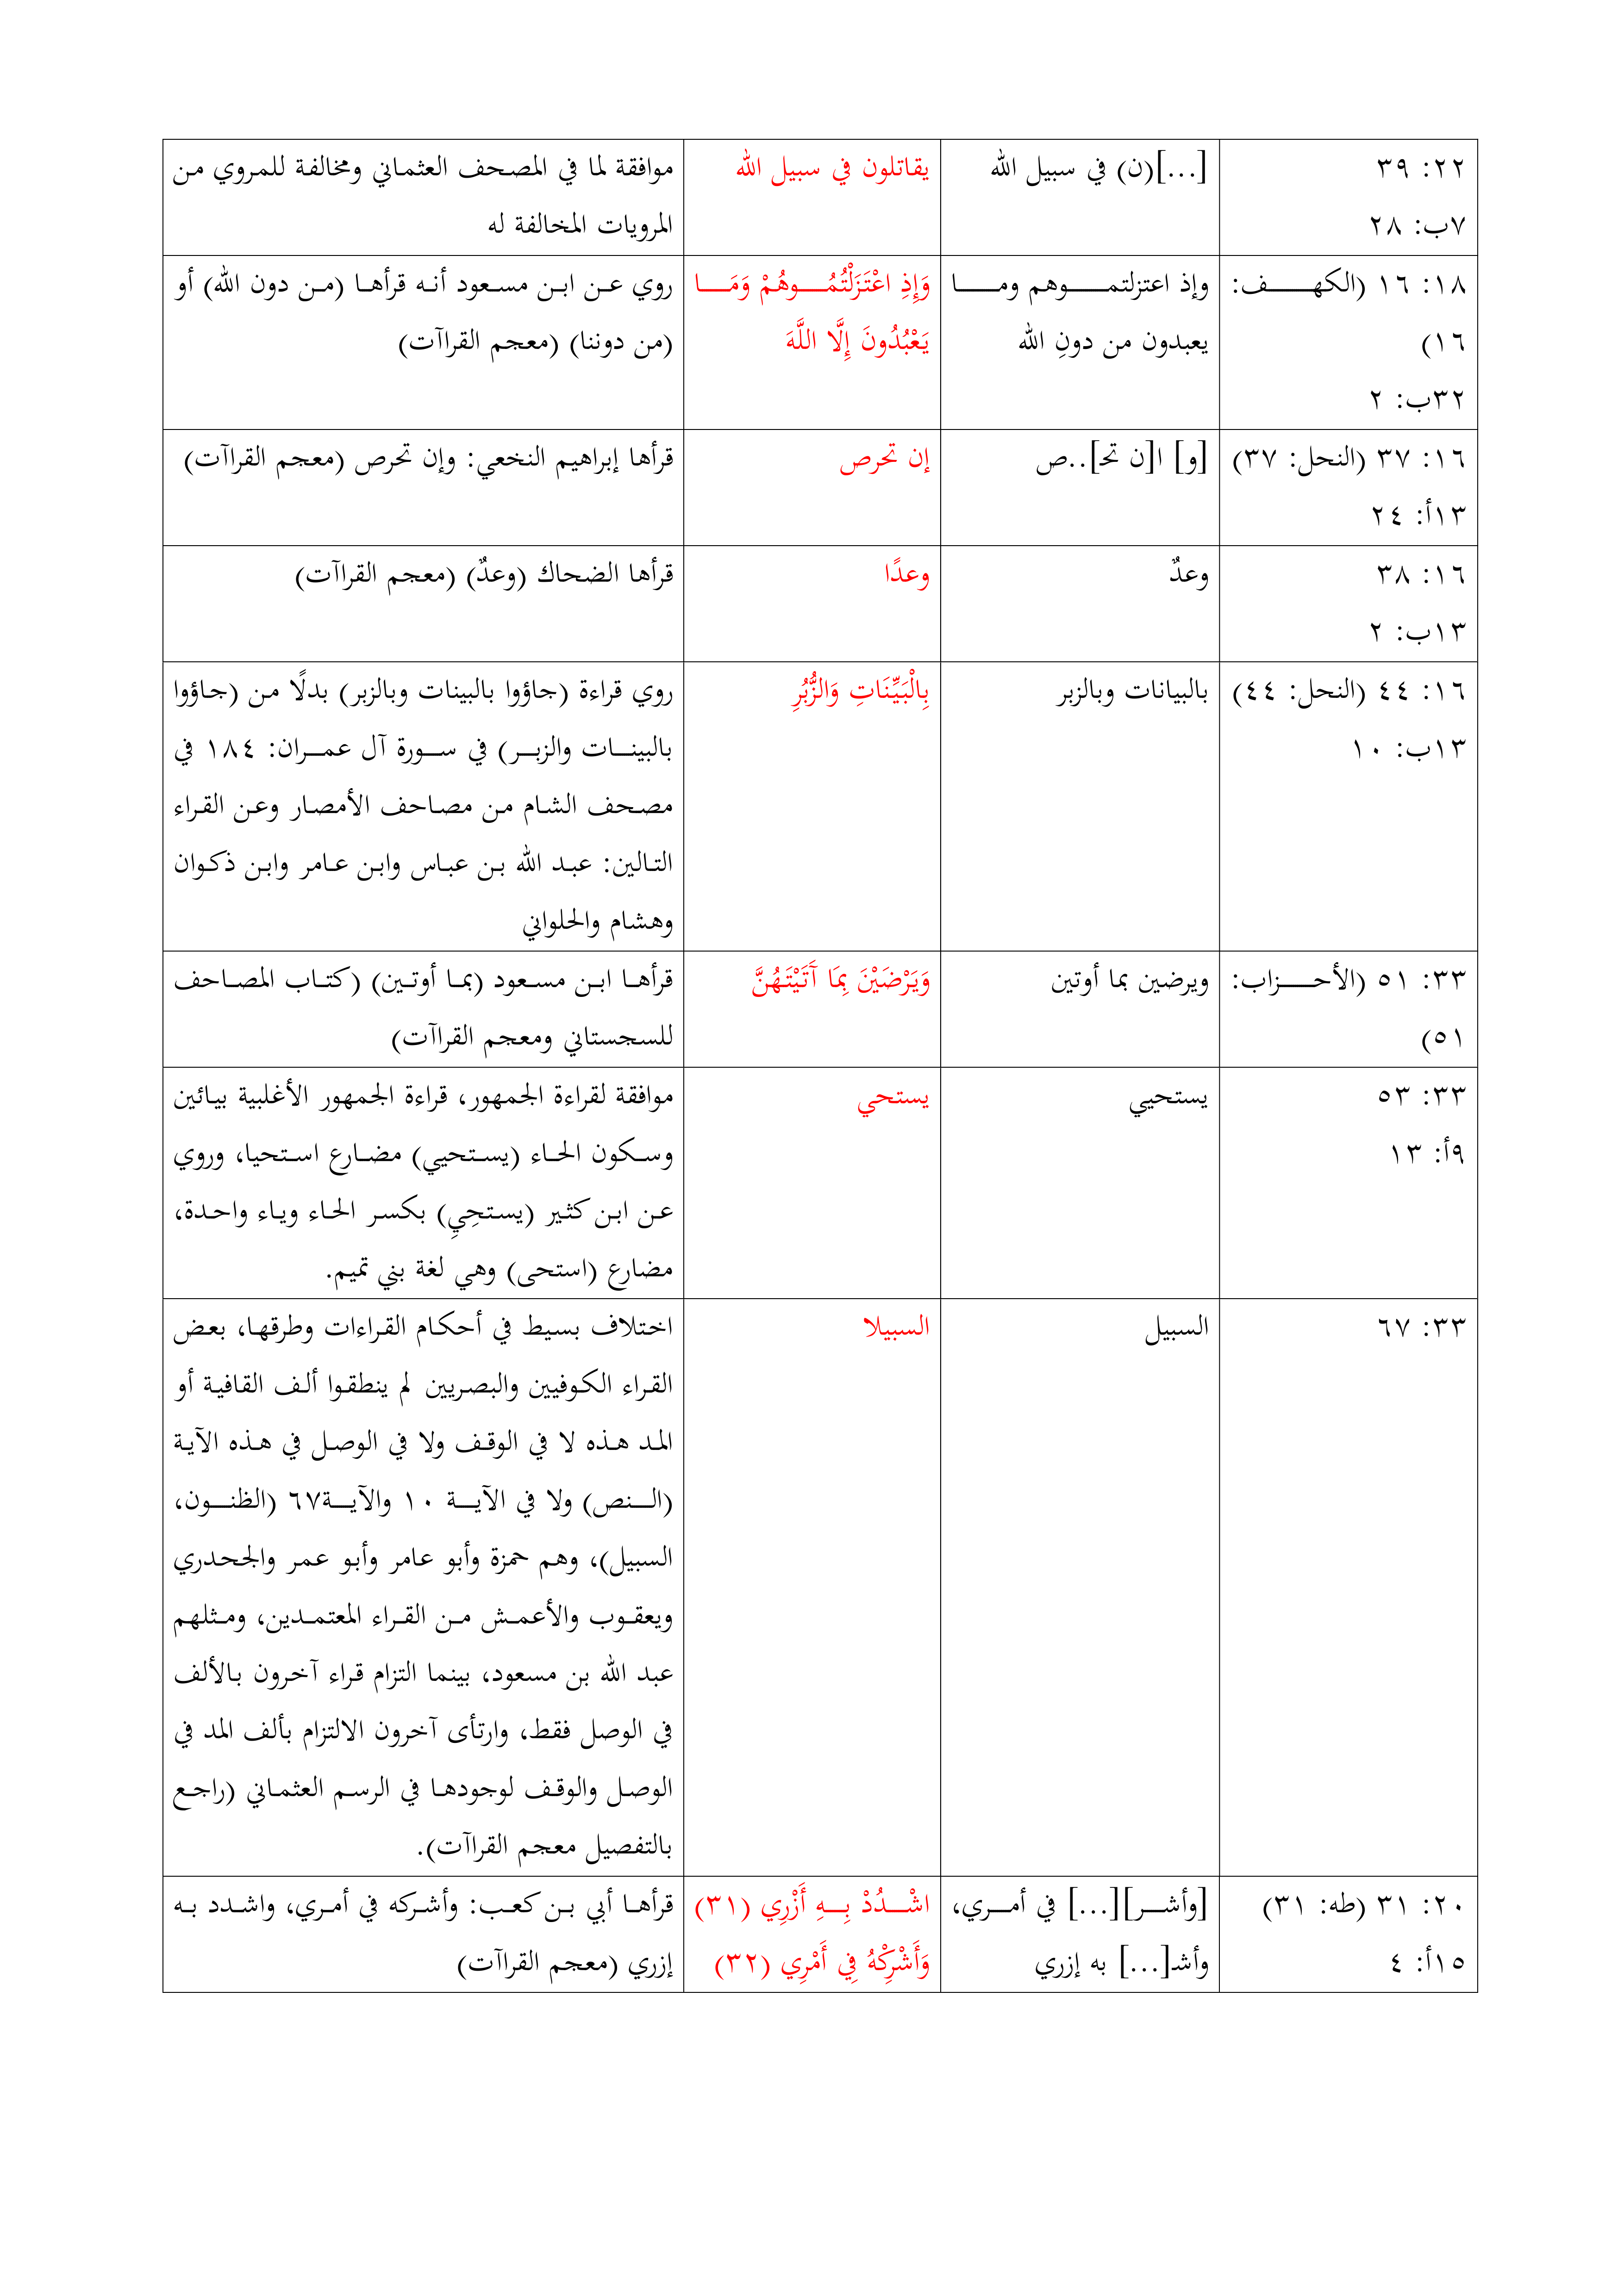 ٢٢: ٣٩
٧ب: ٢٨
[...](ن) في سبيل الله
يقاتلون في سبيل الله
موافقة لما في المصحف العثماني ومخالفة للمروي من
المرويات المخالفة له
١٨: ١٦ (الكهف:
١٦)
٣٢ب: ٢
وإذ اعتزلتموهم وما
يعبدون من دونِ الله
وَإِذِ اعْتَزَلْتُمُوهُمْ وَمَا
يَعْبُدُونَ إِلَّا اللَّهَ
روي عن ابن مسعود أنه قرأها (من دون الله) أو
(من دوننا) (معجم القراآت)
١٦: ٣٧ (النحل: ٣٧)
١٣أ: ٢٤
[و] ا[ن تحـ]..ص
إن تحرص
قرأها إبراهيم النخعي: وإن تحرص (معجم القراآت)
١٦: ٣٨
١٣ب: ٢
وعدٌ
وعدًا
قرأها الضحاك (وعدٌ) (معجم القراآت)
١٦: ٤٤ (النحل: ٤٤)
١٣ب: ١٠
بالبيانات وبالزبر
بِالْبَيِّنَاتِ وَالزُّبُرِ
روي قراءة (جاؤوا بالبينات وبالزبر) بدلًا من (جاؤوا
بالبينات والزبر) في سورة آل عمران: ١٨٤ في
مصحف الشام من مصاحف الأمصار وعن القراء
التالين: عبد الله بن عباس وابن عامر وابن ذكوان
وهشام والحلواني
٣٣: ٥١ (الأحزاب:
٥١)
ويرضين بما أوتين
وَيَرْضَيْنَ بِمَا آَتَيْتَهُنَّ
قرأها ابن مسعود (بما أوتين) (كتاب المصاحف
للسجستاني ومعجم القراآت)
٣٣: ٥٣
٩أ: ١٣
يستحيي
يستحي
موافقة لقراءة الجمهور، قراءة الجمهور الأغلبية بيائين
وسكون الحاء (يستحيي) مضارع استحيا، وروي
عن ابن كثير (يستحِيِ) بكسر الحاء وياء واحدة،
مضارع (استحى) وهي لغة بني تميم.
٣٣: ٦٧
السبيل
السبيلا
اختلاف بسيط في أحكام القراءات وطرقها، بعض
القراء الكوفيين والبصريين لم ينطقوا ألف القافية أو
المد هذه لا في الوقف ولا في الوصل في هذه الآية
(النص) ولا في الآية ١٠ والآية٦٧ (الظنون،
السبيل)، وهم حمزة وأبو عامر وأبو عمر والجحدري
ويعقوب والأعمش من القراء المعتمدين، ومثلهم
عبد الله بن مسعود، بينما التزام قراء آخرون بالألف
في الوصل فقط، وارتأى آخرون الالتزام بألف المد في
الوصل والوقف لوجودها في الرسم العثماني (راجع
بالتفصيل معجم القراآت).
٢٠: ٣١ (طه: ٣١)
١٥أ: ٤
[وأشر][...] في أمري،
وأشـ[...] به إزري
اشْدُدْ بِهِ أَزْرِي (٣١)
وَأَشْرِكْهُ فِي أَمْرِي (٣٢)
قرأها أبي بن كعب: وأشركه في أمري، واشدد به
إزري (معجم القراآت)